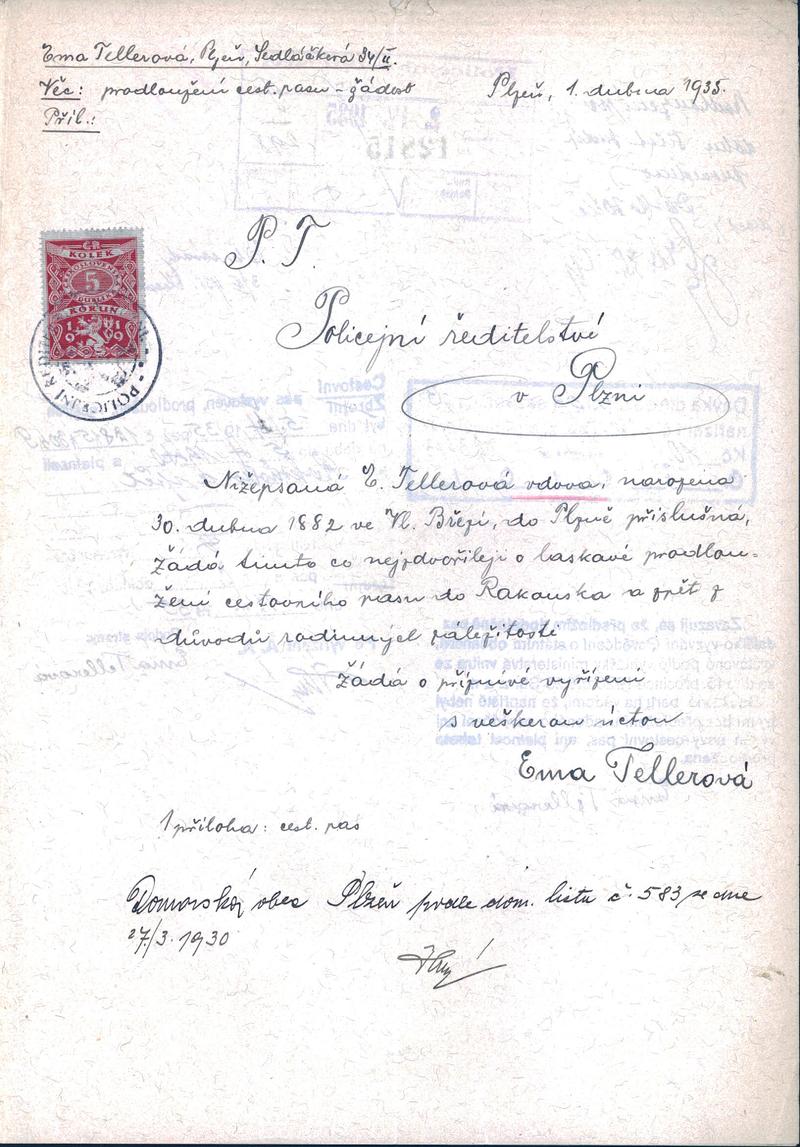 Ema Tellerová, Plzeň, Sedláčkova 34/II.
Věc: prodloužení cest. pasu - žádost
Plzeň, 1. dubna 1935.
Příl.:
P. T.
ČR
KOLEK
5
KORUN
POLICEJNÍ
Policejní ředitelství
v Plzni
Nižepsaná E. Tellerová vdova, narozena
30. dubna 1882 ve Vl. Březí, do Plzně příslušná,
žádá tímto co nejzdvořileji o laskavé prodlou-
žení cestovního pasu do Rakouska a zpět z
důvodů rodinných záležitostí
Žádá o příznivé vyřízení
s veškerou úctou
Ema Tellerová
1 příloha: cest. pas
Domovská obec Plzeň podle dom. listu č. 583 ze dne
27/3. 1930